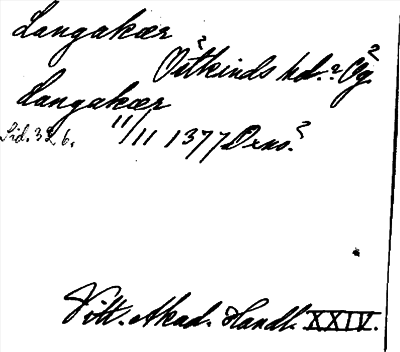 Langakær
Östkinds hd.? Ög.?
Langakær
Sid. 326. 11/11 1377 Orns.?
Vitt. Akad. Handl. XXIV.